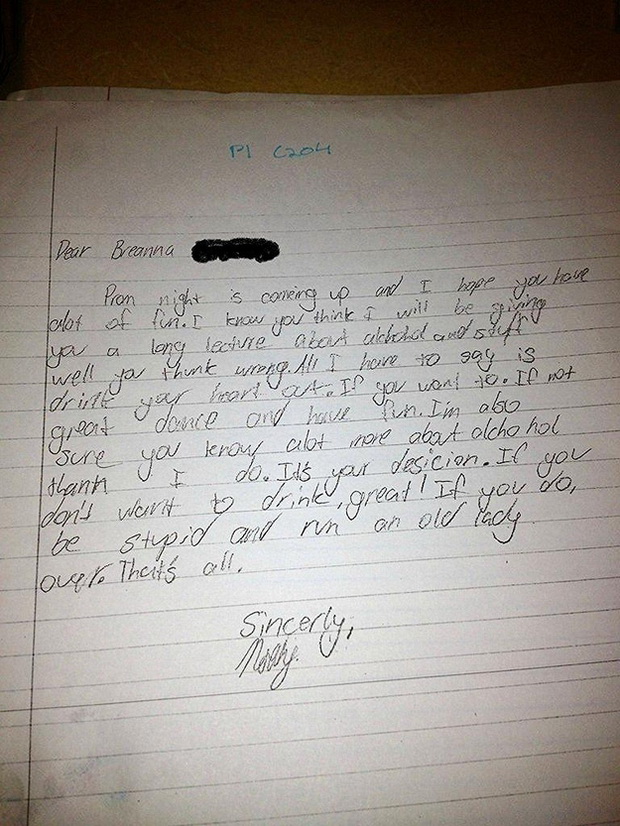 P1 C204
Dear Breanna
Prom night is comeing up and I hope you have
alot of fun. I know you think I will be giving
you a long lecture about alchohol and stuff
well you thunk wrong. All I have to say is
drink your heart out. If you want to. If not
great dance and have fun. I'm also
sure you know alot more about alchohol
thank I do. It's your desicion. If you
don't want to drink, great! If you do,
be stupid and run an old lady
over. That's all.
Sincerly,